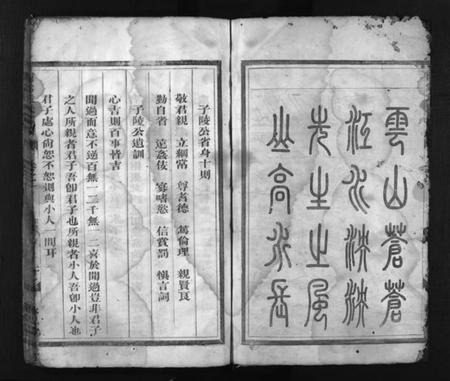 雲山蒼蒼
江水泱泱
先生之風
山高水長
子陵公省身十則
敬君親 立綱常 尊耆德 篤倫理 親賢良
勤自省 遠佞 窒嗜慾 信賞罰 慎言詞
子陵公遺訓
心吉則百事皆吉
聞過而意不逆百無一二千無一二喜於聞過豈非君子
之人所親者君子吾卽君子也所親者小人吾卽小人也
君子處心尙恕不恕則與小人一間耳